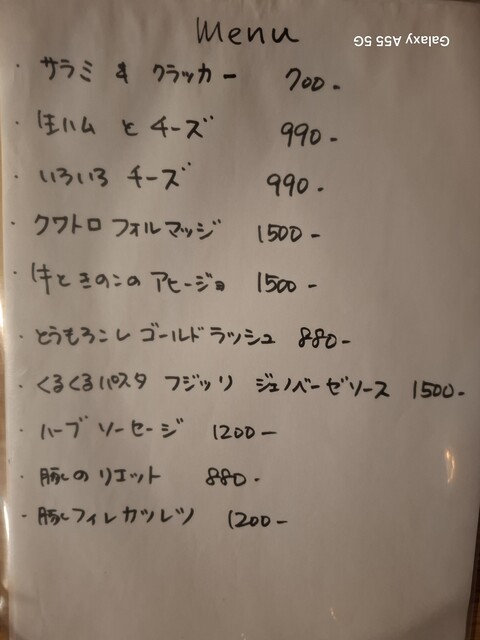 Menu
Galaxy A55 5G
・サラミ & クラッカー 700-
・生ハム と チーズ 990-
・いろいろ チーズ 990-
・クワトロ フォルマッジ 1500-
・牛ときのこの アヒージョ 1500-
・とうもろこし ゴールドラッシュ 880-
・くるくるパスタ フジッリ ジェノベーゼソース 1500-
・ハーブ ソーセージ 1200-
・豚のリエット 880-
・豚フィレカツレツ 1200-